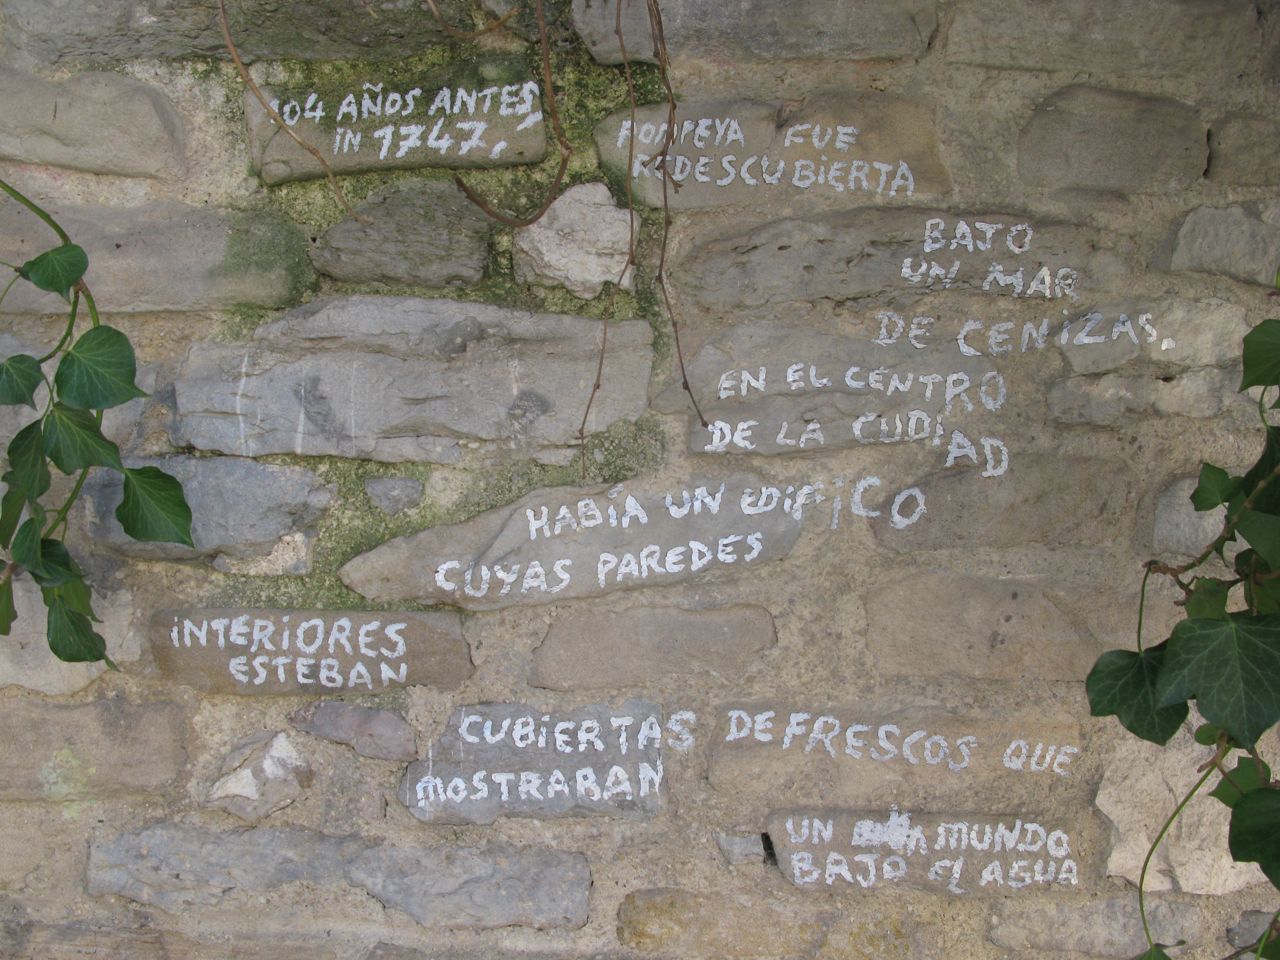 104 AÑOS ANTES
iN 1747,
POMPEYA FUE
REDESCUBiERTA
BAJO
UN MAR
DE CENiZAS.
EN EL CENTRO
DE LA CUDiAD
HABíA UN EDiFiCO
CUYAS PAREDES
iNTERiORES
ESTEBAN
CUBiERTAS DE FRESCOS QUE
MOSTRABAN
UN MUNDO
BAJO EL AGUA